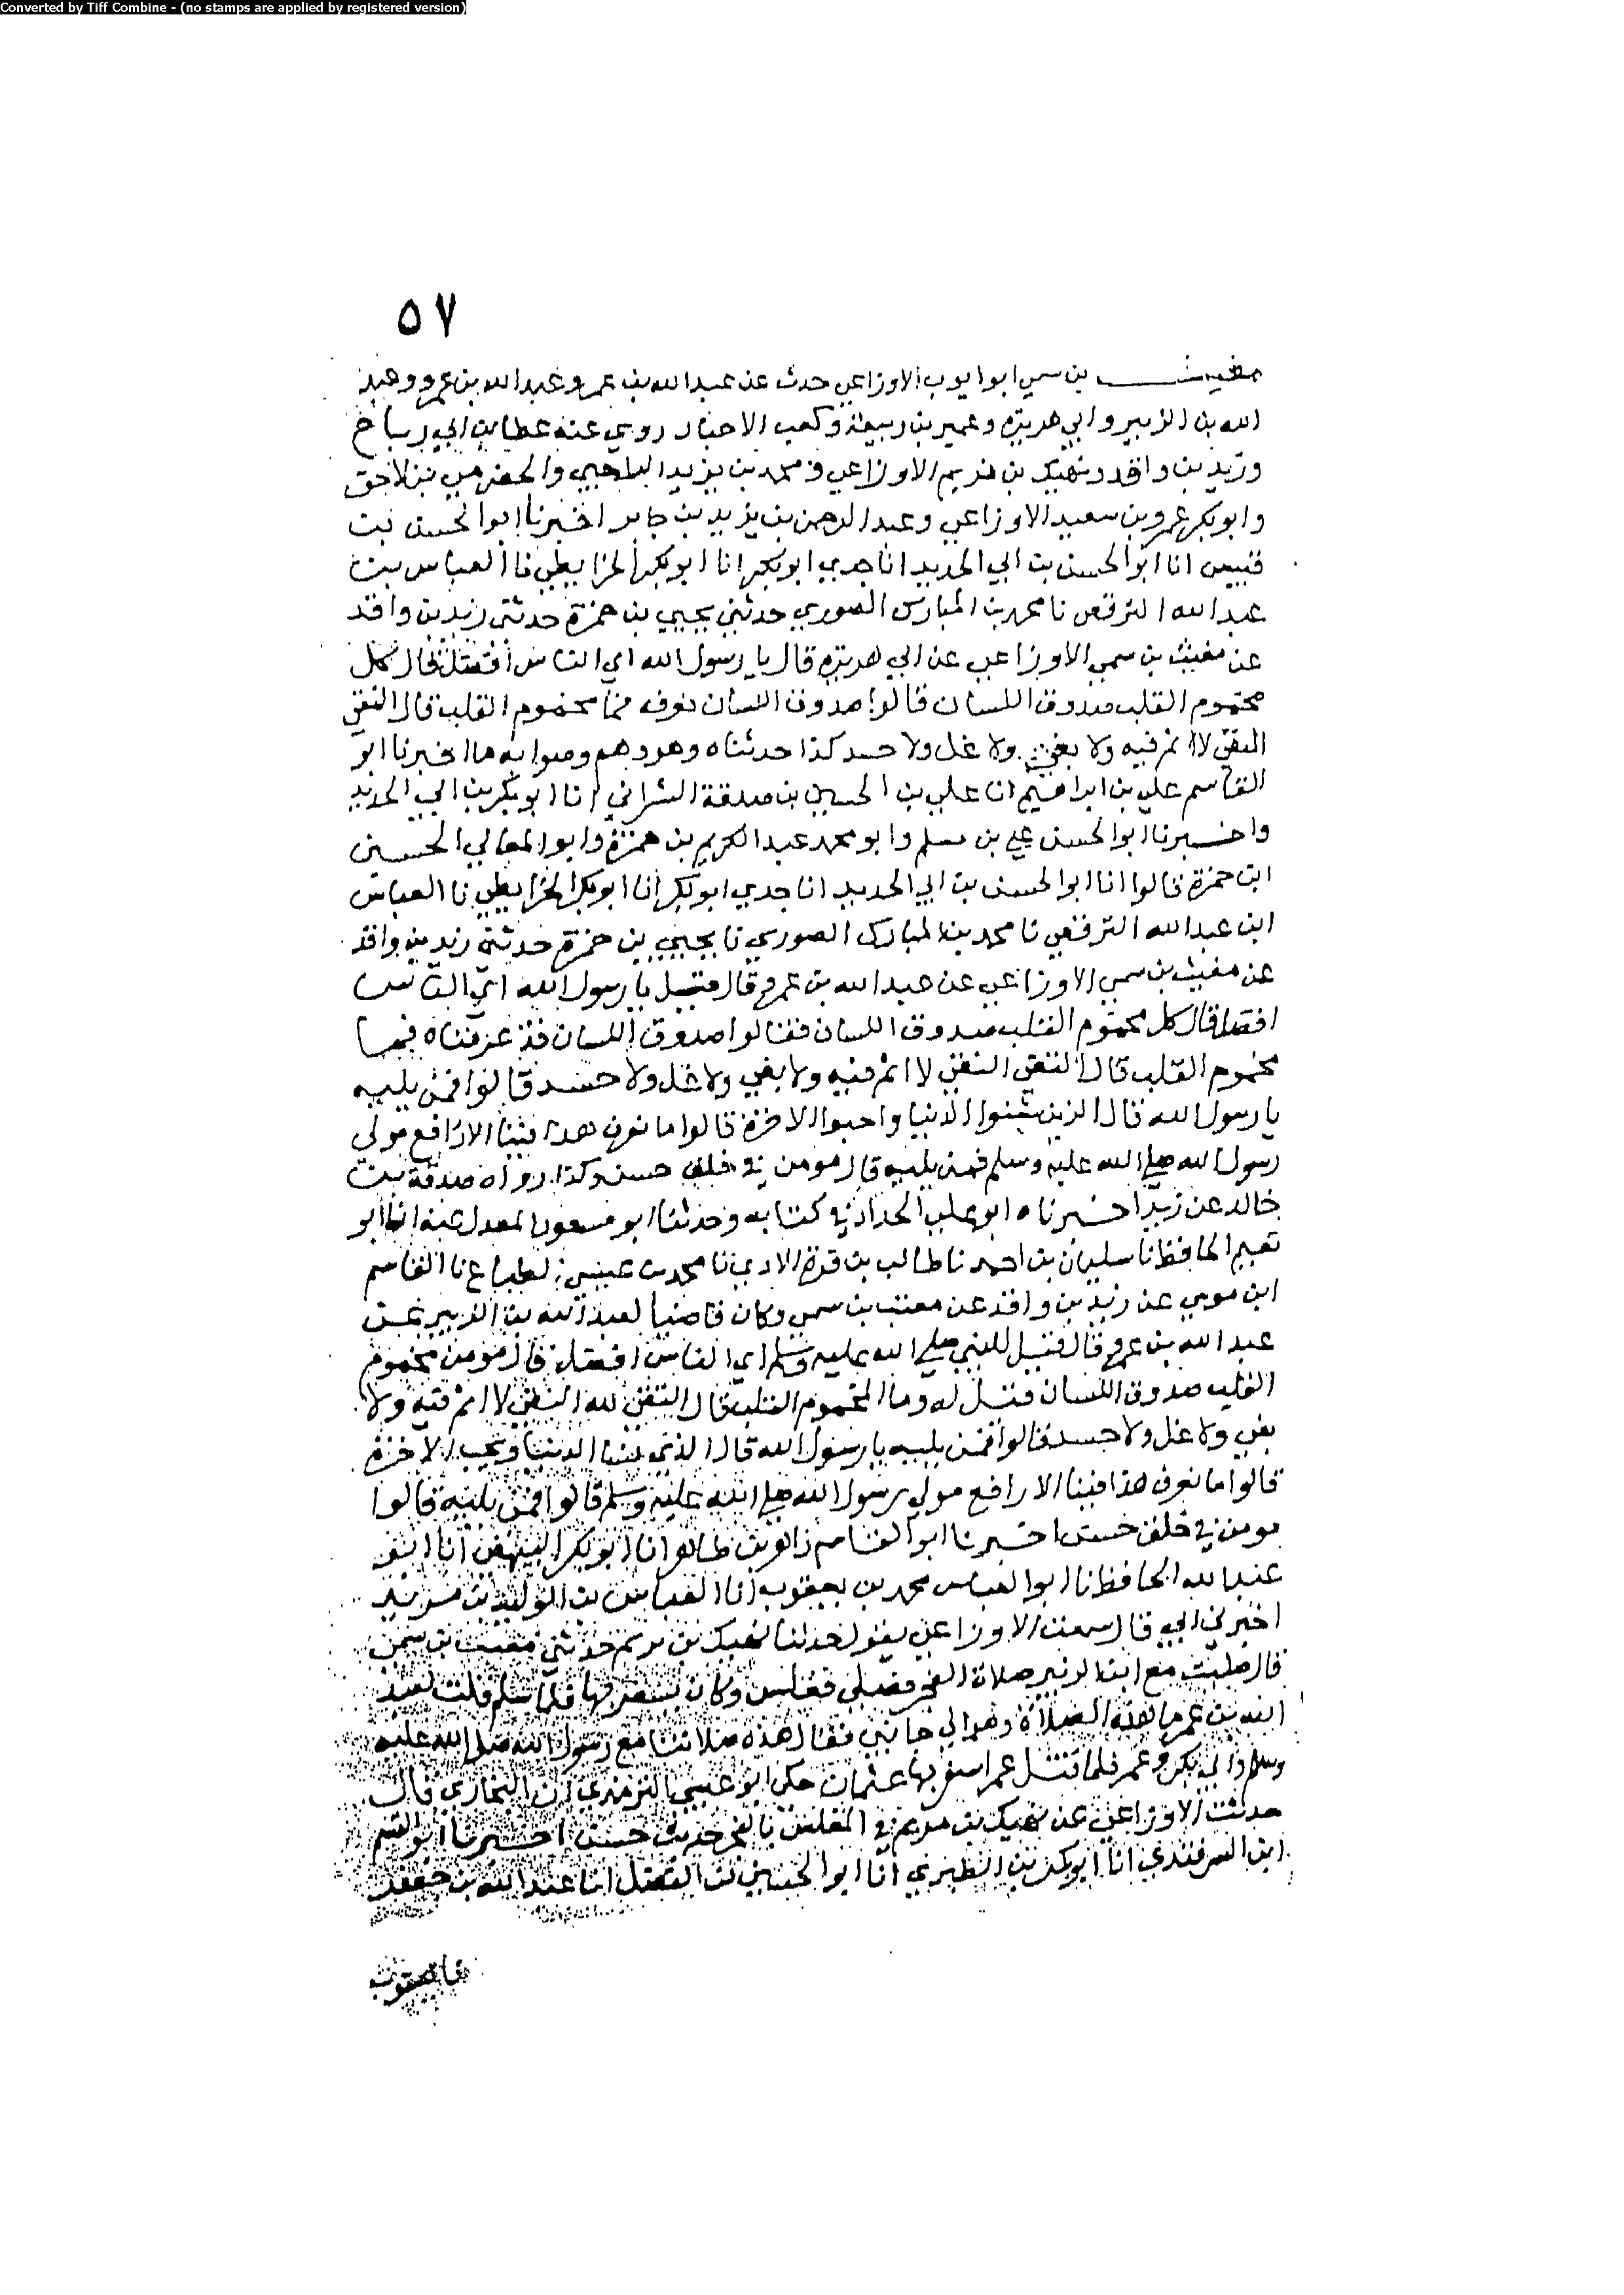 Converted by Tiff Combine - (no stamps are applied by registered version)
٥٧
مغيث بن سمي ابو ايوب الاوزاعي حدث عن عبد الله بن عمر وعبد الله بن عمرو وعبد
الله بن الزبير وابي هريرة وعمير بن ربيعة وكعب الاحبار روى عنه عطا بن ابي رباح
وزيد بن واقد ونهيك بن يريم الاوزاعي ومحمد بن يزيد الرحبي والحضرمي بن لاحق
وابو بكر عمرو بن سعيد الاوزاعي وعبد الرحمن بن يزيد بن جابر اخبرنا ابو الحسن بن
قبيس انا ابو الحسن بن ابي الحديد انا جدي ابو بكر انا ابو بكر الخرايطي نا العباس بن
عبد الله الترقفي نا محمد بن المبارك الصوري حدثني يحيى بن حمزة حدثني زيد بن واقد
عن مغيث بن سمي الاوزاعي عن ابي هريرة قال يا رسول الله اي الناس افضل قال كل
مخموم القلب صدوق اللسان قالوا صدوق اللسان نعرفه فما مخموم القلب قال التقي
النقي لا اثم فيه ولا بغي ولا غل ولا حسد كذا حدثناه وهو وهم وصوابه ما اخبرنا ابو
القاسم علي بن ابراهيم انا علي بن الحسين بن صدقة الشرابي انا ابو بكر بن ابي الحديد
واخبرنا ابو الحسن علي بن مسلم وابو محمد عبد الكريم بن حمزة وابو المعالي الحسين
ابن حمزة قالوا انا ابو الحسن بن ابي الحديد انا جدي ابو بكر انا ابو بكر الخرايطي نا العباس
ابن عبد الله الترقفي نا محمد بن المبارك الصوري نا يحيى بن حمزة حدثني زيد بن واقد
عن مغيث بن سمي الاوزاعي عن عبد الله بن عمرو قال قيل يا رسول الله اي الناس
افضل قال كل مخموم القلب صدوق اللسان فقالوا صدوق اللسان قد عرفناه فما
مخموم القلب قال التقي النقي لا اثم فيه ولا بغي ولا غل ولا حسد قالوا فمن يليه
يا رسول الله قال الذين شنوا الدنيا واحبوا الاخرة قالوا ما نعرف هذا فينا الا رافع مولى
رسول الله صلى الله عليه وسلم فمن يليه قال مومن في خلق حسن وكذا رواه صدقة بن
خالد عن زيد اخبرناه ابو علي الحداد في كتابه وحدثنا ابو مسعود المعدل عنه انا ابو
نعيم الحافظ نا سليمان بن احمد نا طالب بن قرة الادني نا محمد بن عيسى الطباع نا القاسم
ابن موسى عن زيد بن واقد عن مغيث بن سمي وكان قاضيا لعبد الله بن الزبير عن
عبد الله بن عمرو قال قيل للنبي صلى الله عليه وسلم اي الناس افضل قال مومن مخموم
القلب صدوق اللسان قيل له وما المخموم القلب قال التقي لله النقي لا اثم فيه ولا
بغي ولا غل ولا حسد قالوا فمن يليه يا رسول الله قال الذي يشنا الدنيا ويحب الاخرة
قالوا ما نعرف هذا فينا الا رافع مولى رسول الله صلى الله عليه وسلم قالوا فمن يليه قالوا
مومن في خلق حسن اخبرنا ابو القاسم زاهر بن طاهر انا ابو بكر البيهقي انا ابو
عبد الله الحافظ نا ابو العباس محمد بن يعقوب انا العباس بن الوليد بن مزيد
اخبرني ابي قال سمعت الاوزاعي يقول حدثنا نهيك بن يريم حدثني مغيث بن سمي
قال صليت مع ابن الزبير صلاة الفجر فصلى فغلس وكان يسفر بها فلما سلم قلت لعبد
الله بن عمر ما هذه الصلاة وهو الى جانبي فقال هذه صلاتنا مع رسول الله صلى الله عليه
وسلم وابي بكر وعمر فلما قتل عمر اسفر بها عثمان حكى ابو عيسى الترمذي ان البخاري قال
حديث الاوزاعي عن نهيك بن يريم في التغليس بالفجر حديث حسن اخبرنا ابو القسم
ابن السمرقندي انا ابو بكر بن الطبري انا ابو الحسين بن الفضل انا عبد الله بن جعفر
نا يعقوب